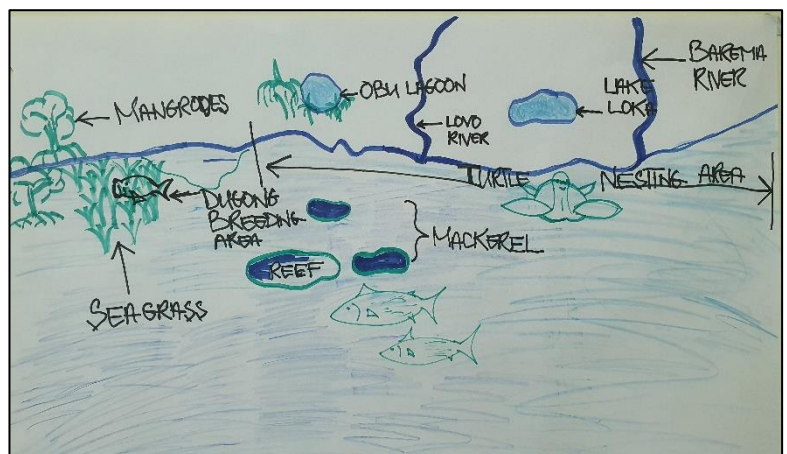 MANGRODES
OBU LAGOON
LOVO
RIVER
LAKE
LOKA
BAREMA
RIVER
TURTLE NESTING AREA
DUGONG
BREEDING
AREA
MACKEREL
REEF
SEAGRASS